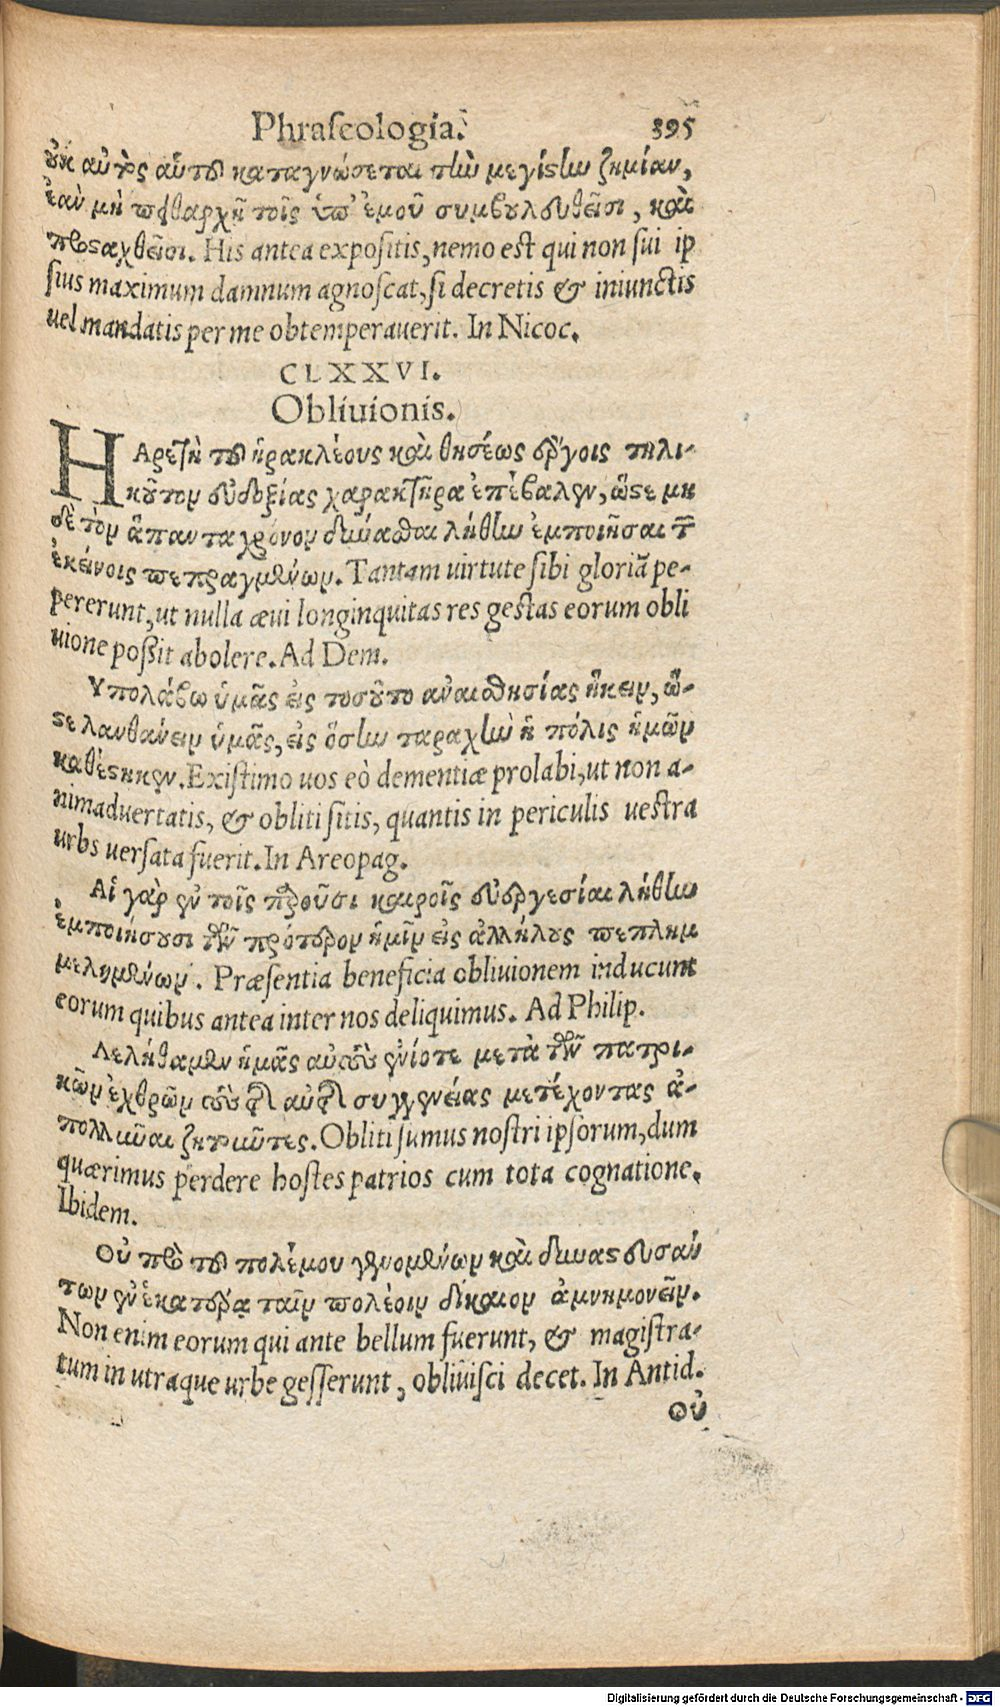 Phraseologia. 395
οὐκ αὐτὸς αὑτοῦ καταγνώσεται τὴν μεγίστην ζημίαν,
ἐὰν μὴ πειθαρχῇ τοῖς ὑπ' ἐμοῦ συμβουλευθεῖσι, καὶ
προσταχθεῖσι. His antea expositis, nemo est qui non sui ip
sius maximum damnum agnoscat, si decretis & iniunctis
uel mandatis per me obtemperauerit. In Nicoc.
CLXXVI.
Obliuionis.
Η Αρετὴ τοῦ ἡρακλέους καὶ θησέως ἔργοις τηλι-
κοῦτον εὐδοξίας χαρακτῆρα ἐπέβαλεν, ὥστε μη
δὲ τὸν ἅπαντα χρόνον δύναθαι λήθην ἐμποιῆσαι τῶν
ἐκείνοις πεπραγμένων. Tantam uirtute sibi gloriã pe-
pererunt, ut nulla æui longinquitas res gestas eorum obli
uione possit abolere. Ad Dem.
Υπολάβω ὑμᾶς εἰς τοσοῦτο ἀναισθησίας ἥκειν, ὥ-
στε λανθάνειν ὑμᾶς, εἰς ὅσην ταραχὴν ἡ πόλις ἡμῶν
καθέστηκεν. Existimo uos eò dementiæ prolabi, ut non a-
nimaduertatis, & obliti sitis, quantis in periculis uestra
urbs uersata fuerit. In Areopag.
Αἱ γὰρ ἐν τοῖς παροῦσι καιροῖς εὐεργεσίαι λήθην
ἐμποιήσουσι τῶν πρότερον ἡμῖν εἰς ἀλλήλους πεπλημ
μελημένων. Præsentia beneficia obliuionem inducunt
eorum quibus antea inter nos deliquimus. Ad Philip.
Λελήθαμεν ἡμᾶς αὐτοὺς ἐνίοτε μετὰ τῶν πατρι-
κῶν ἐχθρῶν τοὺς τῆς αὐτῆς συγγενείας μετέχοντας ἀ-
πολλῦναι ζητοῦντες. Obliti sumus nostri ipsorum, dum
quærimus perdere hostes patrios cum tota cognatione.
Ibidem.
Οὐ πρὸ τοῦ πολέμου γενομένων καὶ δυναστευσάν
των ἐν ἑκατέρᾳ ταῖν πολέοιν δίκαιον ἀμνημονεῖν.
Non enim eorum qui ante bellum fuerunt, & magistra-
tum in utraque urbe gesserunt, obliuisci decet. In Antid.
Οὐ
Digitalisierung gefördert durch die Deutsche Forschungsgemeinschaft - DFG